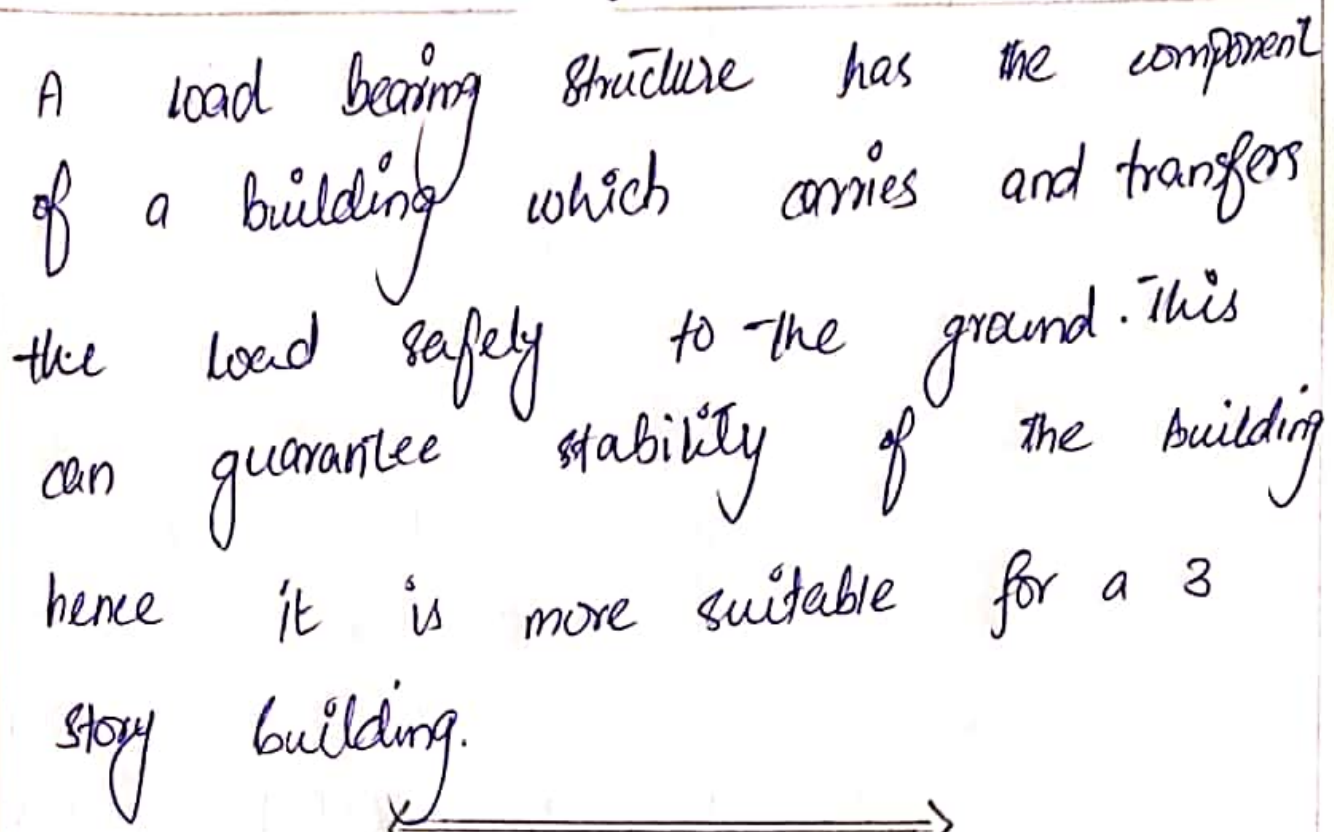 A load bearing structure has the component
of a building which carries and transfers
the load safely to the ground. This
can guarantee stability of the building
hence it is more suitable for a 3
story building.